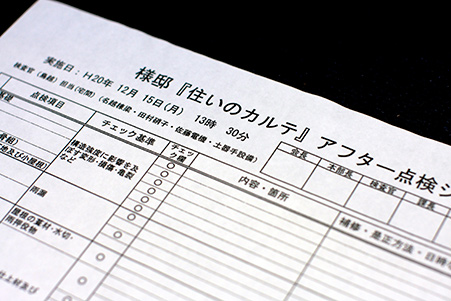 様邸『住いのカルテ』アフター点検シ
実施日：H20年 12月 15日(月) 13時 30分
検査官（鳥越）担当（宅間）（名越棟梁・田村靖子・佐藤電機・土器手設備）
会長
本部長
検査官
課長
点検項目
チェック基準
チェック欄
内容・箇所
補修・是正方法・日時
構造強度に影響を及ぼす変形・損傷・亀裂など
雨漏
屋根の葺材・水切・雨押役物
仕上材及び